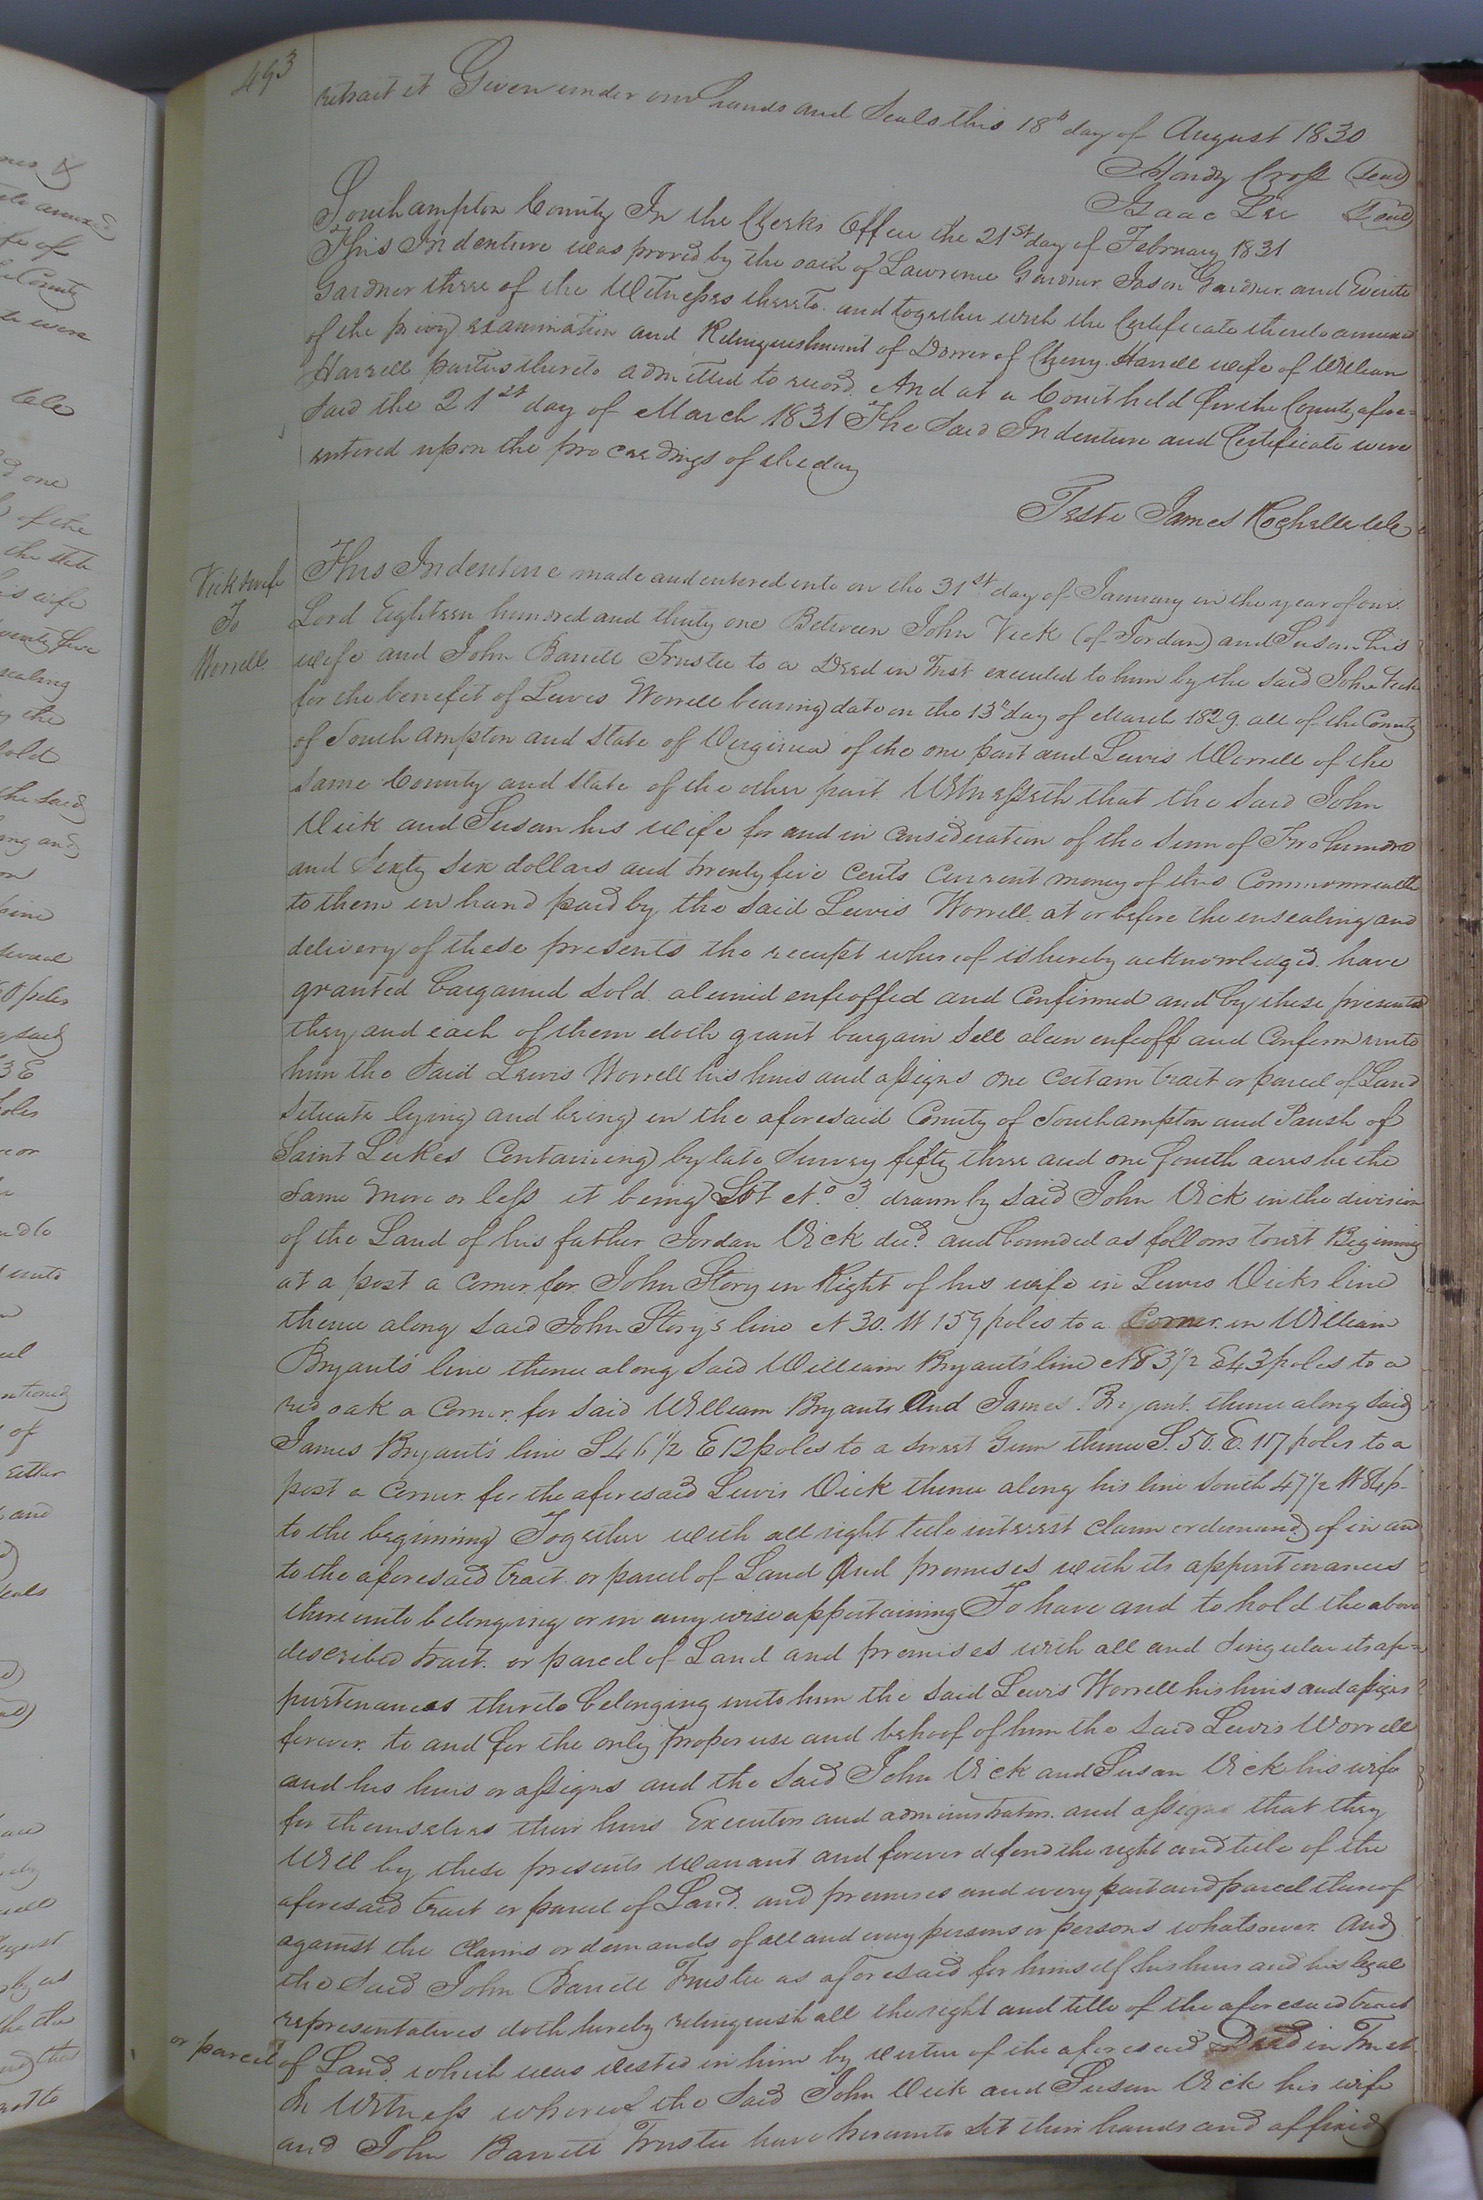 493
retract it Given under our hands and Seals this 18th day of August 1830
Hardy Cross (Seal)
Isaac Lee (Seal)
Southampton County In the Clerks Office the 21st day of February 1831
This Indenture was proved by the oath of Lawrence Gardner Jason Gardner and Everite
Gardner three of the Witnesses thereto and together with the Certificate thereto annexed
of the privy examination and Relinquishment of Dower of Cherry Harrell wife of William
Harrell parties thereto admitted to record And at a Court held for the County afore=
said the 21st day of March 1831 The Said Indenture and Certificate were
entered upon the proceedings of the day
Teste James Rochelle clk
Vick & wife
To
Worrell
This Indenture made and entered into on the 31st day of January in the year of our
Lord Eighteen hundred and thirty one Between John Vick (of Jordan) and Susan his
wife and John Barrett Trustee to a Deed in Trust executed to him by the Said John Vick
for the benefit of Lewis Worrell bearing date on the 13th day of March 1829. all of the County
of Southampton and State of Virginia of the one part and Lewis Worrell of the
same County and State of the other part Witnesseth that the Said John
Vick and Susan his wife for and in consideration of the Sum of Two hundred
and Sixty Six dollars and twenty five Cents Current money of this Commonwealth
to them in hand paid by the Said Lewis Worrell at or before the ensealing and
delivery of these presents the receipt whereof is hereby acknowledged have
granted bargained Sold aliened enfeoffed and Confirmed and by these presents
they and each of them doth grant bargain Sell alien enfeoff and Confirm unto
him the Said Lewis Worrell his heirs and assigns one Certain tract or parcel of Land
Situate lying and being in the aforesaid County of Southampton and Parish of
Saint Lukes Containing by late Survey fifty three and one fourth acres be the
Same More or less it being Lot No 3. drawn by Said John Vick in the division
of the Land of his father Jordan Vick decd and bounded as follows towit Begining
at a post a Corner for John Story in Right of his wife in Lewis Vicks line
thence along Said John Storys line N 30. W 159 poles to a Corner in William
Bryants line thence along Said William Bryants line N 83 1/2 E 43 poles to a
red oak a Corner for Said William Bryants And James Bryant thence along Said
James Bryants line S 46 1/2 E 12 poles to a Sweet Gum thence S. 50. E. 117 poles to a
post a Corner for the aforesaid Lewis Vick thence along his line South 47 1/2 W 84 p.
to the begining Together with all right title interest claim or demand of in and
to the aforesaid tract or parcel of Land And premises with its appurtenances
there unto belonging or in any wise appertaining To have and to hold the above
described tract or parcel of Land and premises with all and Singular its ap=
purtenances thereto belonging unto him the Said Lewis Worrell his heirs and assigns
forever to and for the only proper use and behoof of him the Said Lewis Worrell
and his heirs or assigns and the Said John Vick and Susan Vick his wife
for themselves their heirs Executors and administrators and assigns that they
Will by these presents warrant and forever defend the right and title of the
aforesaid tract or parcel of Land and premises and every part and parcel thereof
against the claims or demands of all and every persons or persons whatsoever. And
the Said John Barrett Trustee as aforesaid for himself his heirs and his legal
representatives doth hereby relinquish all the right and title of the aforesaid tract
or parcel of Land which was vested in him by virtue of the aforesaid Deed in Trust
In Witness whereof the Said John Vick and Susan Vick his wife
and John Barrett Trustee have hereunto Set their hands and affixed